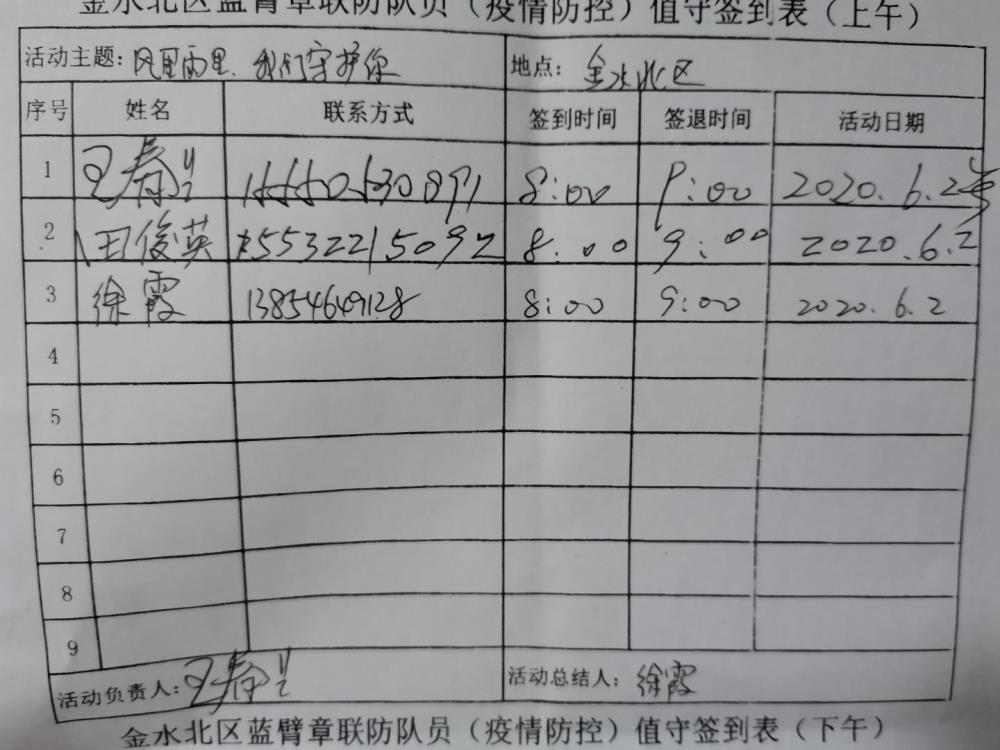 金水北区蓝臂章联防队员（疫情防控）值守签到表（上午）
活动主题：风里雨里、我们守护你 地点：金水北区
序号 姓名 联系方式 签到时间 签退时间 活动日期
1 王春兰 8:00 9:00 2020.6.2
2 田俊英 15532215092 8:00 9:00 2020.6.2
3 徐霞 13854649128 8:00 9:00 2020.6.2
4
5
6
7
8
9
活动负责人：王春兰 活动总结人：徐霞
金水北区蓝臂章联防队员（疫情防控）值守签到表（下午）